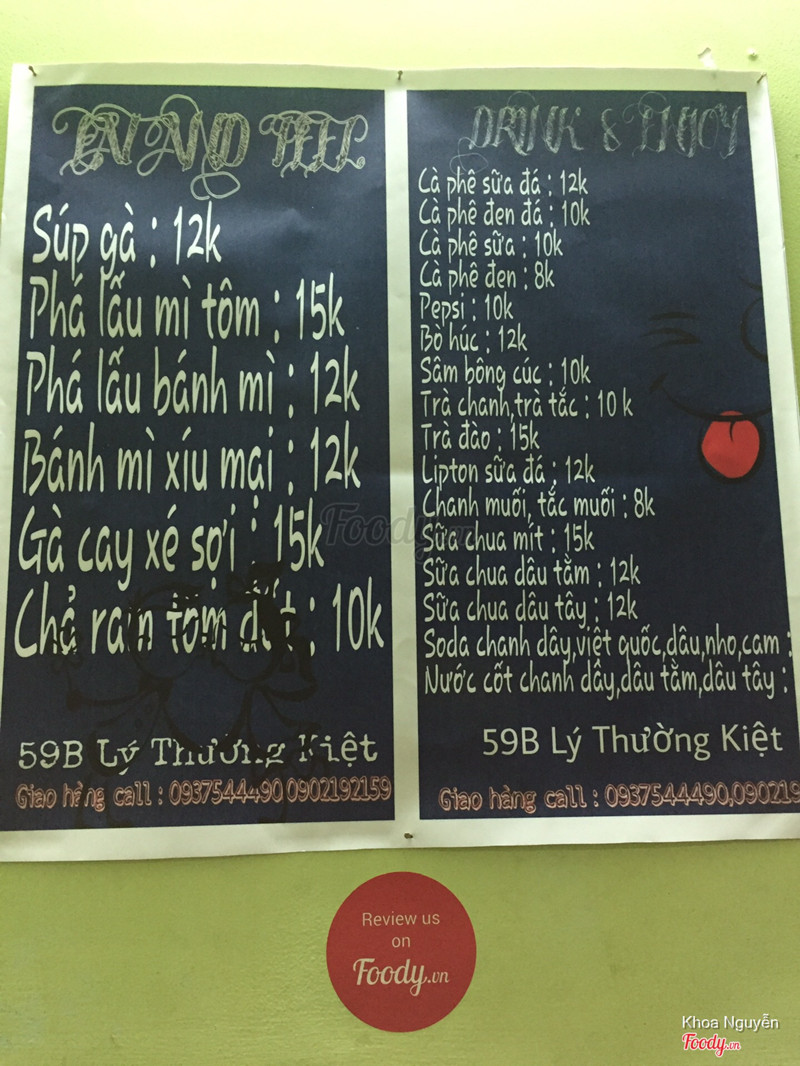 EAT AND FEEL
Súp gà : 12k
Phá lấu mì tôm : 15k
Phá lấu bánh mì : 12k
Bánh mì xíu mại : 12k
Gà cay xé sợi : 15k
Chả ram tôm đất : 10k
59B Lý Thường Kiệt
Giao hàng call : 0937544490 0902192159
DRINK & ENJOY
Cà phê sữa đá : 12k
Cà phê đen đá : 10k
Cà phê sữa : 10k
Cà phê đen : 8k
Pepsi : 10k
Bò húc : 12k
Sâm bông cúc : 10k
Trà chanh,trà tắc : 10 k
Trà đào : 15k
Lipton sữa đá : 12k
Chanh muối, tắc muối : 8k
Sữa chua mít : 15k
Sữa chua dâu tằm : 12k
Sữa chua dâu tây : 12k
Soda chanh dây,việt quốc,dâu,nho,cam :
Nước cốt chanh dây,dâu tằm,dâu tây :
59B Lý Thường Kiệt
Giao hàng call : 0937544490,090219
Foody.vn
Review us
on
Foody.vn
Khoa Nguyễn
Foody.vn